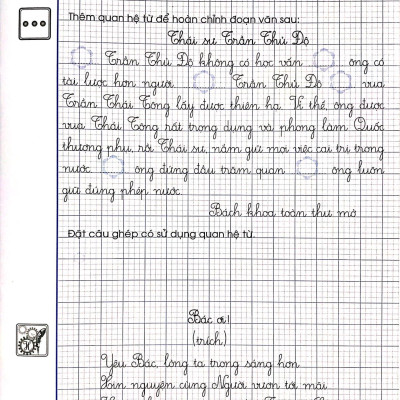 Thêm quan hệ từ để hoàn chỉnh đoạn văn sau:
Thái sư Trần Thủ Độ
Trần Thủ Độ không có học vấn ông có
tài lược hơn người. Trần Thủ Độ vua
Trần Thái Tông lấy được thiên hạ. Vì thế, ông được
vua Thái Tông rất trọng dụng và phong làm Quốc
thượng phụ, rồi Thái sư, nắm giữ mọi việc cai trị trong
nước. ông đứng đầu trăm quan ông luôn
giữ đúng phép nước.
Bách khoa toàn thư mở
Đặt câu ghép có sử dụng quan hệ từ.
Bác ơi!
(trích)
Yêu Bác, lòng ta trong sáng hơn
Xin nguyện cùng Người vươn tới mãi